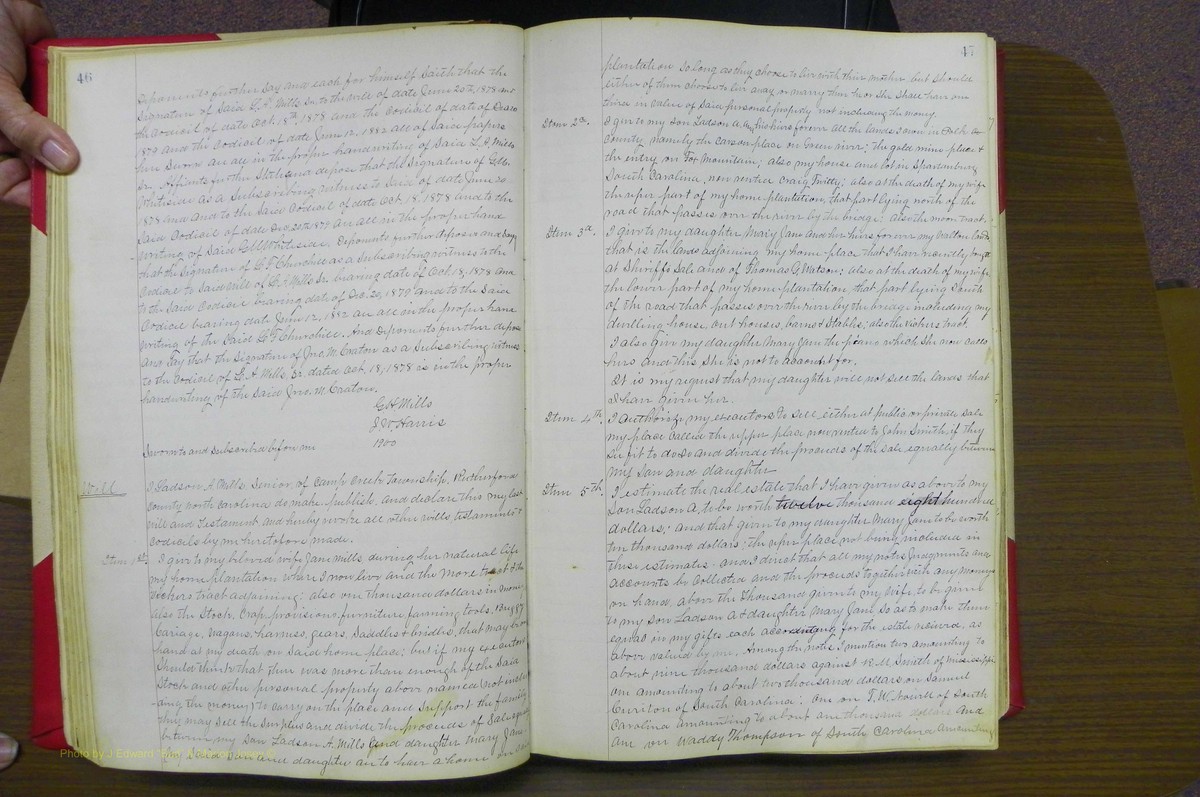 46
deponents further say and each for himself saith that the
signature of said L. A. Mills Sr. to the will of date June 20th, 1878 and
the Codicil of date Oct. 18th, 1878 and the Codicil of date of Dec 20
1879 and the Codicil of date June 12, 1882 all of said papers
here shown are all in the proper handwriting of said L. A. Mills
Sr. Affiants further State and depose that the signature of
Whiteside as a subscribing witness to said of date June 20
1878 and to the said Codicil of date Oct. 18, 1878 and to the
said Codicil of date Dec. 20th 1879 are all in the proper hand
writing of said Whiteside. Deponents further depose and say
that the signature of G. F. Churchill as a subscribing witness to the
Codicil to said will of L. A. Mills Sr. bearing date of Oct 18, 1878 and
to the said Codicil bearing date of Dec. 20, 1879 and to the said
Codicil bearing date June 12, 1882 are all in the proper hand
writing of the said G. F. Churchill. And deponents further depose
and say that the signature of Jno. W. Craton as a subscribing witness
to the Codicil of L. A. Mills, Sr. dated Oct. 18, 1878 is in the proper
handwriting of the said Jno. W. Craton.
G H Mills
J W Harris
Sworn to and subscribed before me 1900
Will I Ladson A Mills Senior of Camp Creek Township, Rutherford
county north Carolina do make, publish, and declare this my last
will and testament and hereby revoke all other wills testaments &
codicils by me heretofore made.
Item 1st. I give to my beloved wife Jane Mills during her natural life
my home plantation where I now live and the More tract & the
Vickers tract adjoining; also one thousand dollars in money
also the stock, Crop, provisions, furniture farming tools, Buggy
Cariage, wagons, harness, gears, saddles & bridles, that may be on
hand at my death on said home place; but if my executors
should think that there was more than enough of the said
stock and other personal property above named (not includ
-ing the money) to carry on the place and support the family
they may sell the surplus and divide the proceeds of sale equally
between my son Ladson A. Mills and daughter Mary Jane
said son and daughter are to have a home on said
Photo by J Edward
47
plantation so long as they choose to live with their mother but should
either of them choose to live away or marry then he or she shall have one
third in value of said personal property not including the money.
Item 2d. I give to my son Ladson A. Mills his heirs forever all the lands I own in Polk Co
County namely the Carson place on Green river; the gold mine place &
the entry on Fox Mountain; also my house and lot in Spartanburg
South Carolina, now rented Craig Twitty; also at the death of my wife
the uper part of my home plantation, that part lying north of the
road that passes over the river by the bridge: also the moon tract.
Item 3d. I give to my daughter Mary Jane and her heirs forever my Walton lands
that is the lands adjoining my home place that I have recently bought
at Shriffs Sale and of Thomas G. Watson; also at the death of my wife
the lower part of my home plantation, that part lying South
of the road that passes over the river by the bridge including my
dwelling house, out houses, barns & stables; also the Vickers tract
I also give my daughter Mary Jane the piano which she now calls
hers and this she is not to account for.
It is my request that my daughter will not sell the lands that
I have given her.
Item 4th. I authorize my executors to sell either at public or private sale
my place called the upper place now rented to John Smith, if they
see fit to do so and divide the proceeds of the sale equally between
my son and daughter
Item 5th. I estimate the real estate that I have given as above to my
son Ladson A, to be worth twelve thousand eight hundred
dollars; and that given to my daughter Mary Jane to be worth
ten thousand dollars; the uper place not being included in
these estimates - and I direct that all my notes Judgments and
accounts be collected and the proceeds together with any money
on hand, above the thousand given to my wife, to be given
to my son Ladson A & daughter Mary Jane so as to make them
equal in my gifts each accounting for the estate received, as
above valued by me. Among the notes I mention two amounting to
about nine thousand dollars against R. M. Smith of Mississippi
one amounting to about two thousand dollars on Samuel
Cureton of South Carolina: one on T. W. of South
Carolina amounting to about one thousand dollars and
one on Waddy Thompson of South Carolina amounting